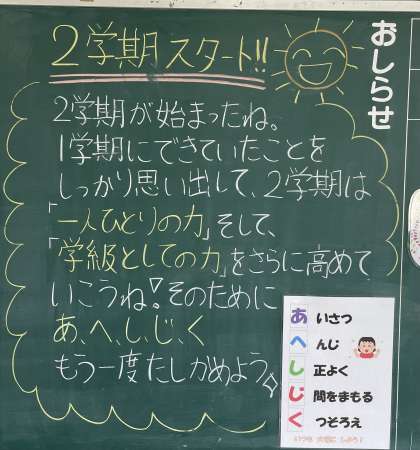 おしらせ
2学期スタート!!
2学期が始まったね。
1学期にできていたことを
しっかり思い出して、2学期は
「一人ひとりの力」そして、
「学級としての力」をさらに高めて
いこうね!そのために
あ、へ、し、じ、く
もう一度たしかめよう
あ いさつ
へ んじ
し 正よく
じ 間をまもる
く つそろえ